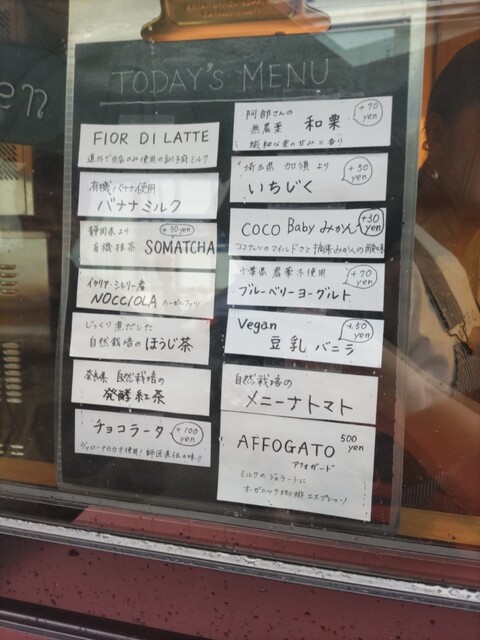 en
TODAY'S MENU
FIOR DI LATTE
バナナミルク
有機バナナ使用
静岡県より
+30 yen
有機抹茶 SOMATCHA
イタリア・シシリー産
NOCCIOLA ヘーゼルナッツ
じっくり煮だした
自然栽培の ほうじ茶
奈良県 自然栽培の
発酵紅茶
チョコラータ
+100 yen
阿部さんの
無農薬 和栗
+70 yen
埼玉県 加須より
+50 yen
いちじく
COCO Baby みかん
+30 yen
ココナッツのマイルドさと柑橘みかんの酸味
千葉県 農薬不使用
+70 yen
ブルーベリーヨーグルト
Vegan
+50 yen
豆乳 バニラ
自然栽培の
メニーナトマト
AFFOGATO 500 yen
アフォガード
ミルクのジェラートに
オーガニック珈琲 エスプレッソ